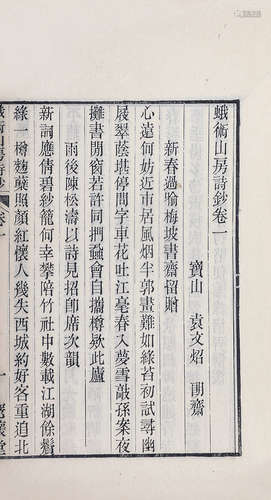 蛾術山房詩鈔卷一
寶山　袁文炤　朙齋
新春過喻梅坡書齋留贈
心遠何妨近市居風烟半郭畫難如綠苔初試尋幽
屐翠蔭堪停問字車花吐江毫春入夢雪敲孫案夜
攤書閒窗若許同捫蝨會自攜樽欵此廬
雨後陳松濤以詩見招卽席次韻
新詞應倩碧紗籠何幸攀陪竹社中數載江湖餘鬢
綠一樽麴糵照顏紅懷人幾失西城約好客重追北
蛾術山房詩鈔
卷一
一